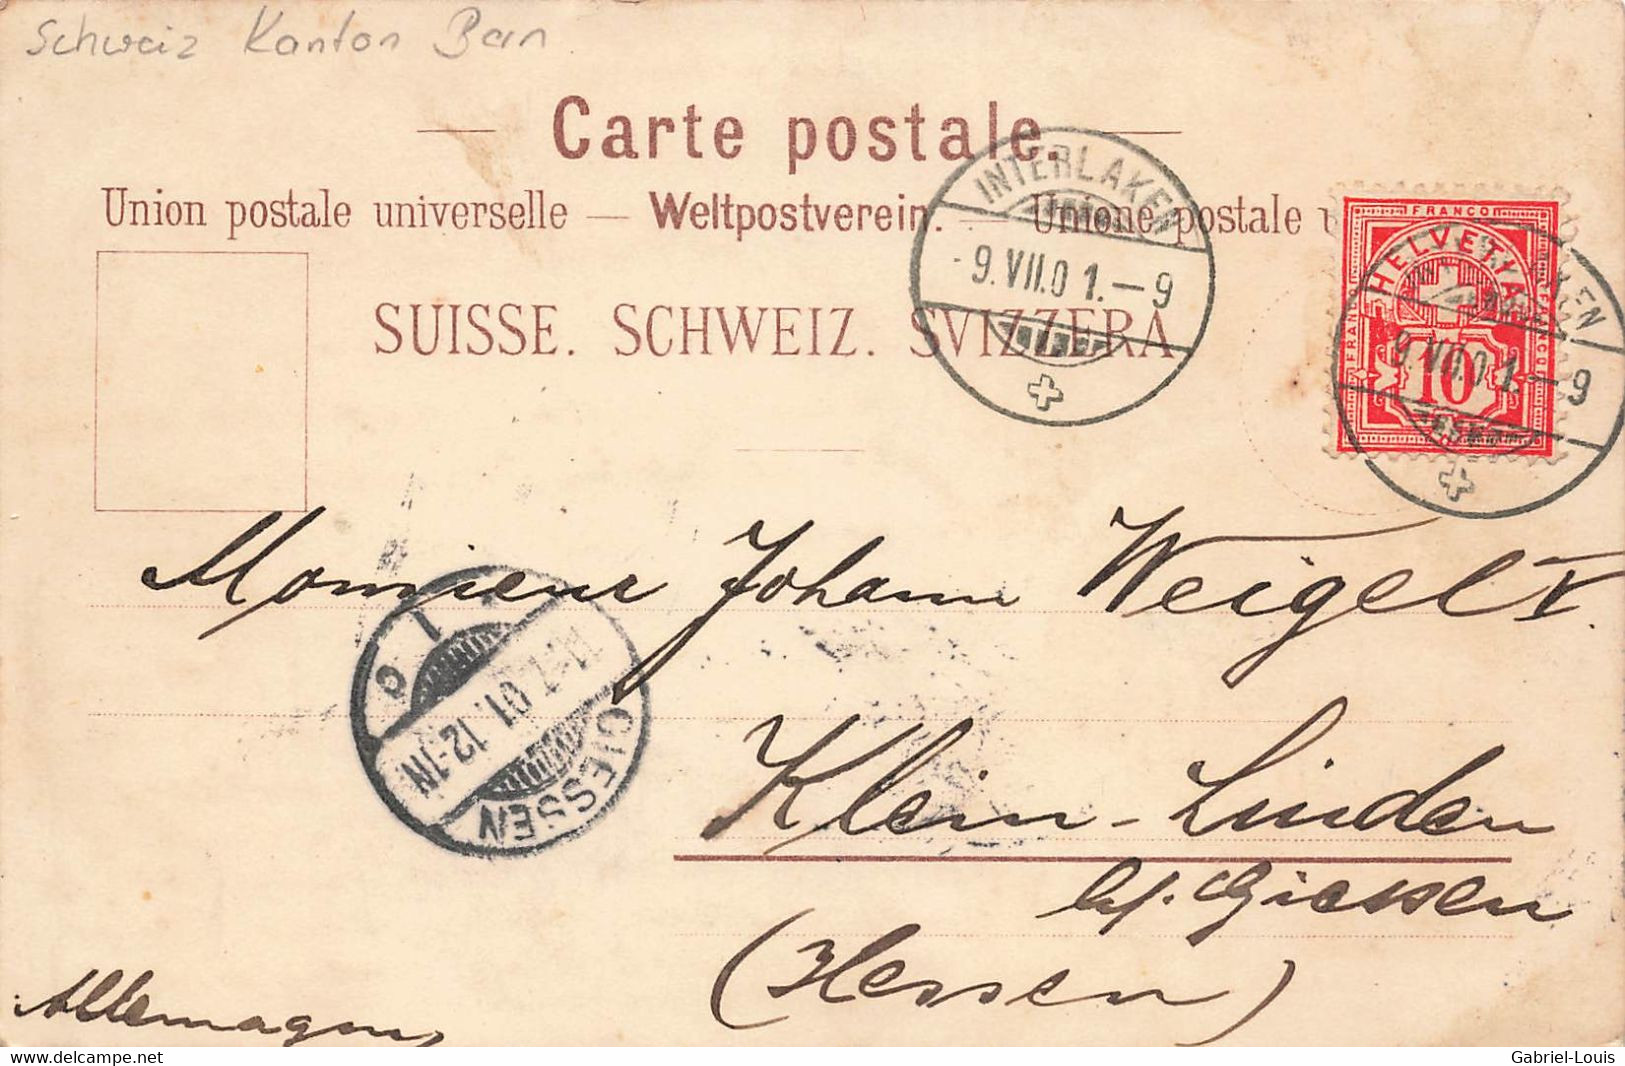 Schweiz Kanton Bern
Carte postale.
Union postale universelle — Weltpostverein. — Unione postale
SUISSE. SCHWEIZ. SVIZZERA
INTERLAKEN
-9.VII.01.-9
FRANCO
HELVETIA
FRANCO
FRANCO
10
9.VII.01.-9
Monsieur Johann Weigel V.
GIESSEN
11.7.01.12-1N
Klein-Linden
bf. Giessen
(Hessen)
Allemagne,
delcampe.net
Gabriel-Louis